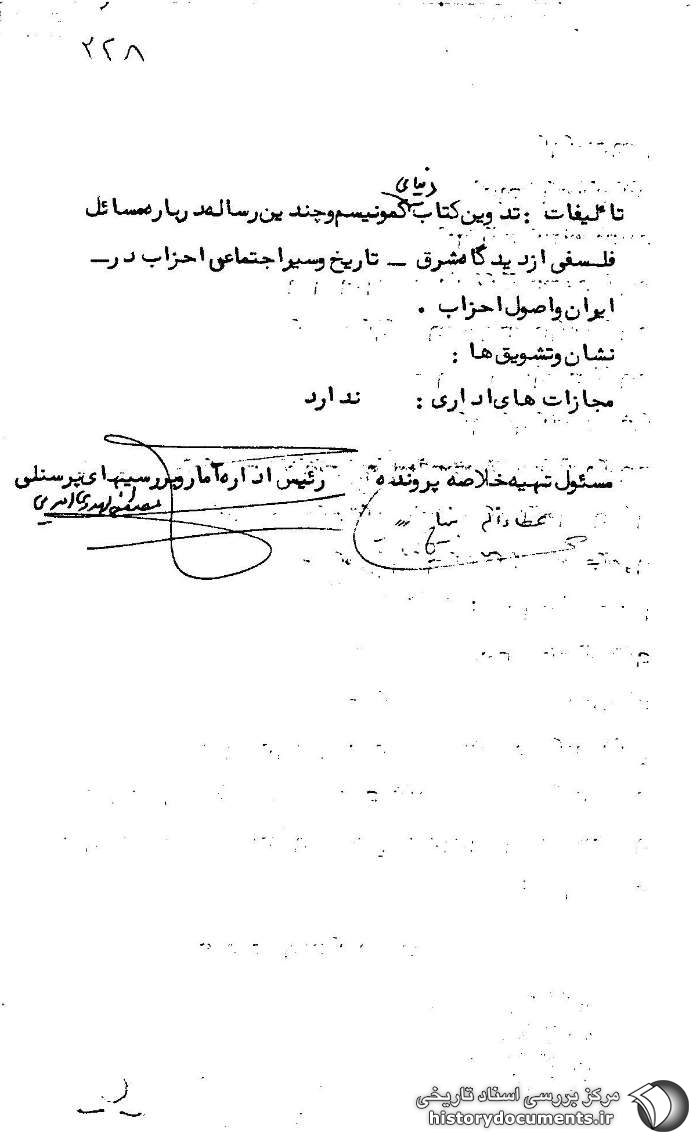 ۲۲۸
دنیای
تألیفات : تدوین کتاب کمونیسم و چندین رساله درباره مسائل
فلسفی از دیدگاه شرق – تاریخ و سیر اجتماعی احزاب در –
ایران و اصول احزاب .
نشان و تشویق ها :
مجازات های اداری : ندارد
مسئول تهیه خلاصه پرونده رئیس اداره آمار و بررسیهای پرسنلی
مرکز بررسی اسناد تاریخی
historydocuments.ir